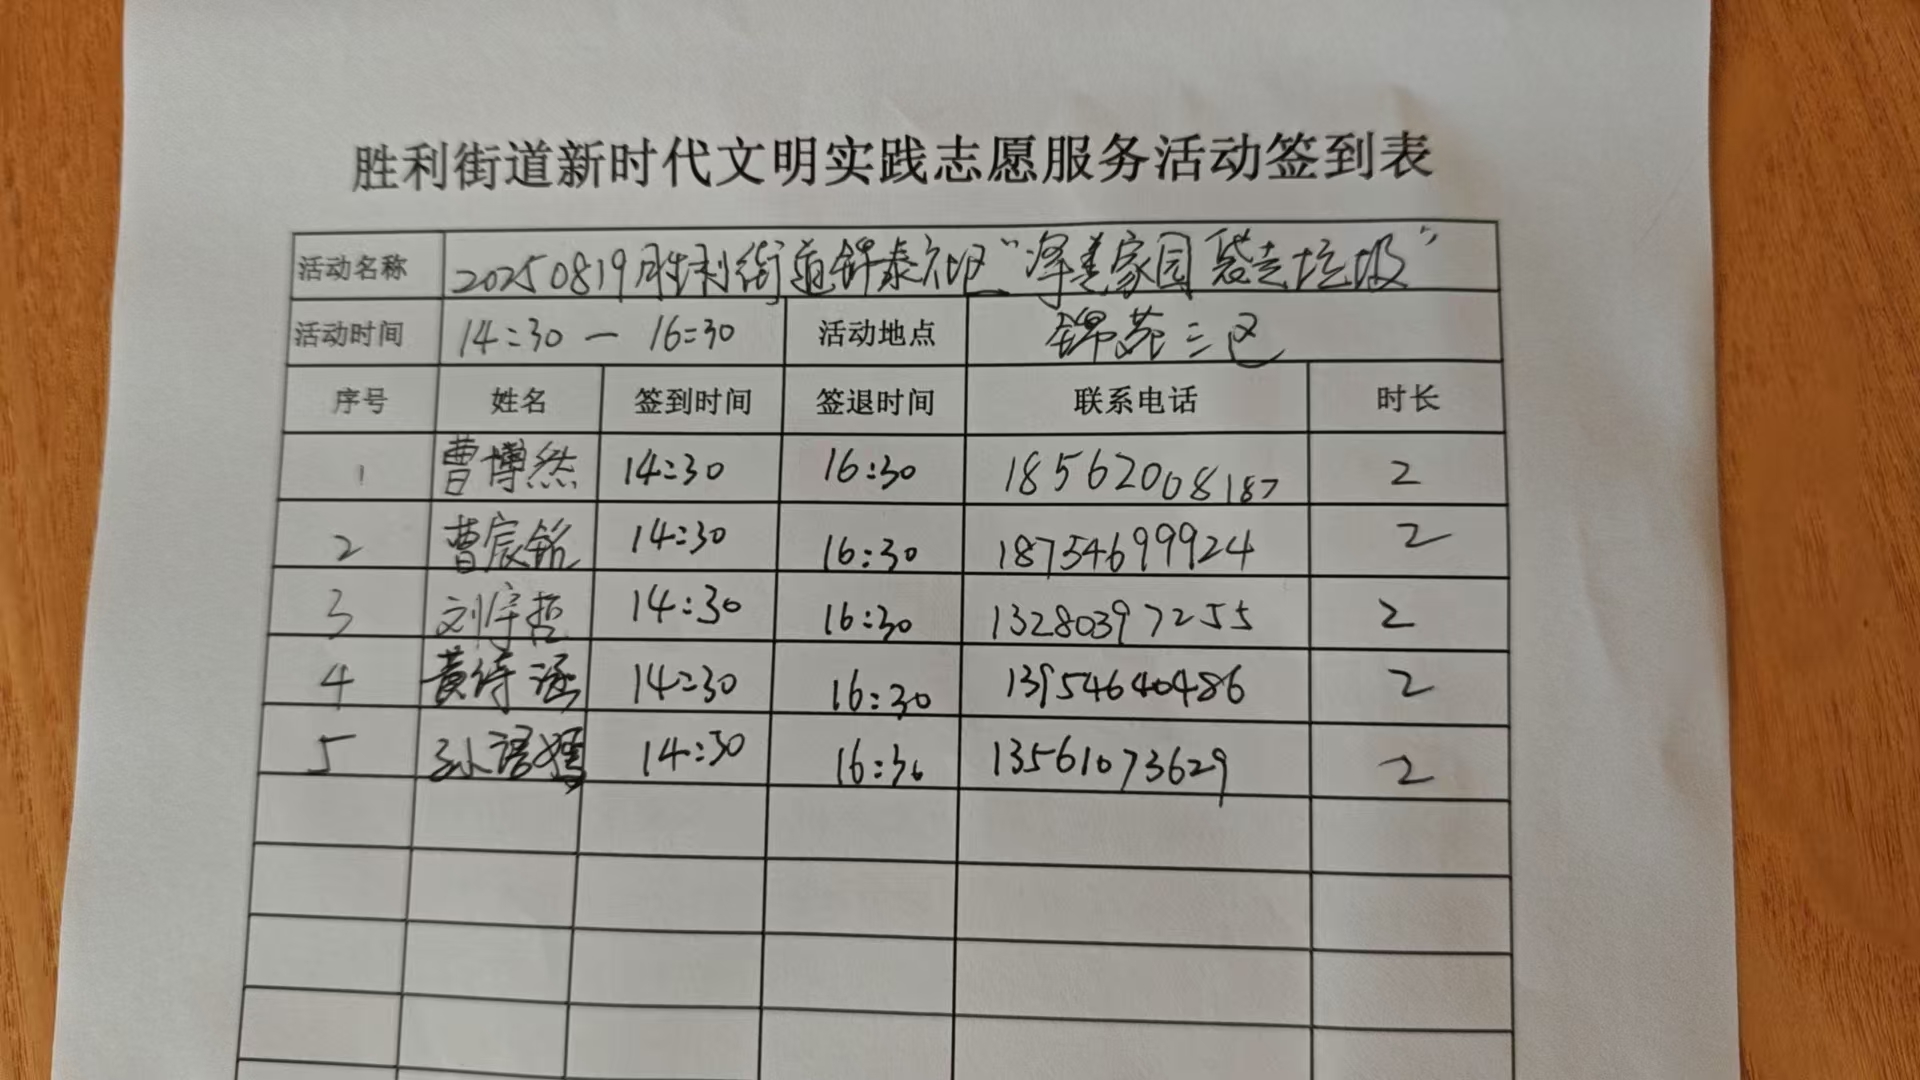 胜利街道新时代文明实践志愿服务活动签到表
活动名称 20250819胜利街道锦泰社区“泽美家园 袋走垃圾”
活动时间 14:30 — 16:30 活动地点 锦苑三区
序号 姓名 签到时间 签退时间 联系电话 时长
1 曹博然 14:30 16:30 18562008187 2
2 曹宸铭 14:30 16:30 18754699924 2
3 刘宇哲 14:30 16:30 13280397255 2
4 黄诗涵 14:30 16:30 13954640486 2
5 孙语嫣 14:30 16:30 13561073629 2